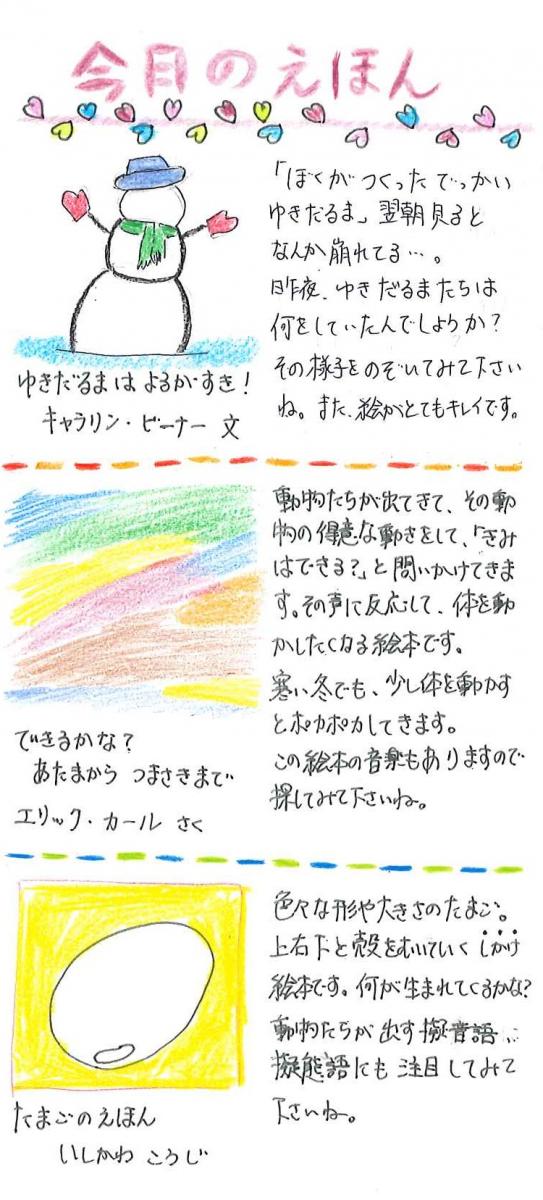 今月のえほん
「ぼくがつくったでっかい
ゆきだるま」翌朝見ると
なんか崩れてる…。
昨夜、ゆきだるまたちは
何をしていたんでしょうか？
その様子をのぞいてみて下さい
ね。また、絵がとてもキレイです。
ゆきだるまは よるがすき！
キャラリン・ビーナー 文
動物たちが出てきて、その動
物の得意な動きをして、「きみ
はできる？」と問いかけてきま
す。その声に反応して、体を動
かしたくなる絵本です。
寒い冬でも、少し体を動かす
とポカポカしてきます。
この絵本の音楽もありますので
探してみて下さいね。
できるかな？
あたまから つまさきまで
エリック・カール さく
色々な形や大きさのたまご。
上右下と殻をむいていくしかけ
絵本です。何が生まれてくるかな？
動物たちが出す擬音語、
擬態語にも注目してみて
下さいね。
たまごのえほん
いしかわ こうじ